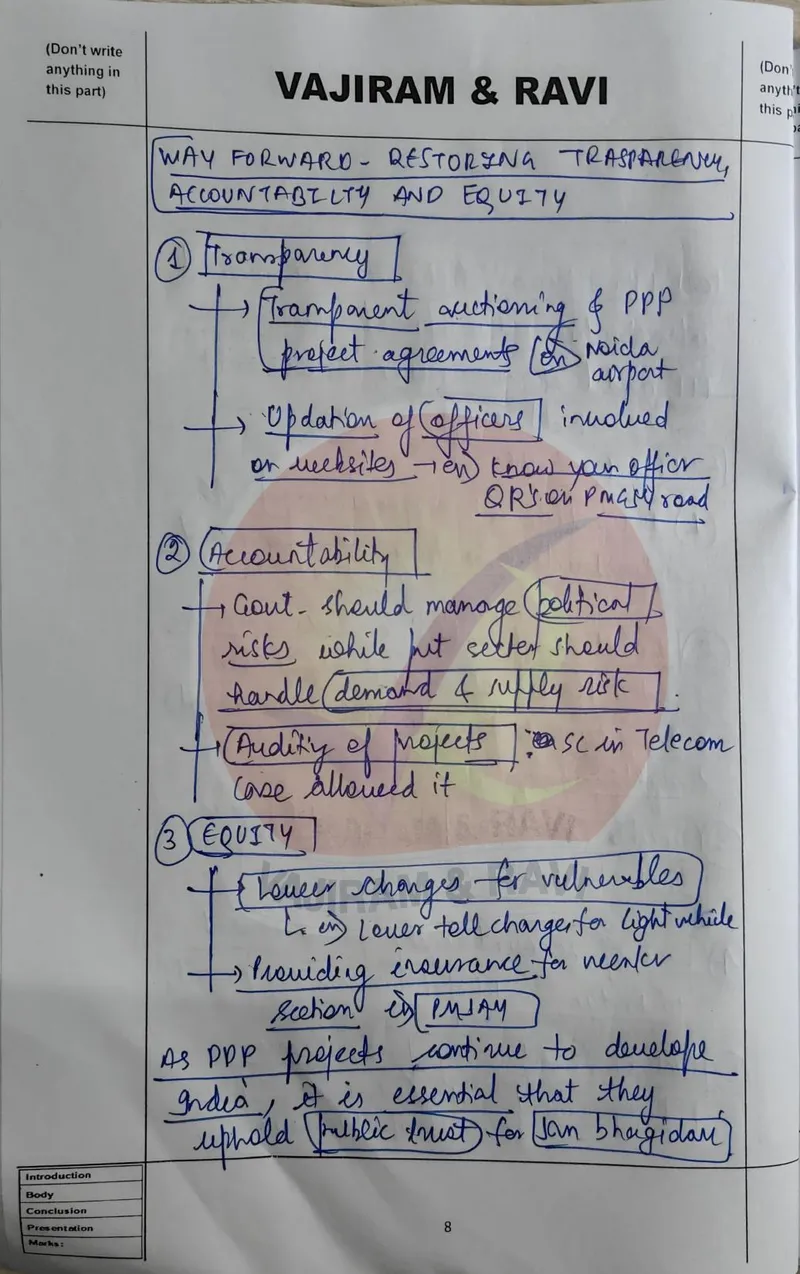 (Don't write
anything in
this part)
VAJIRAM & RAVI
(Don'
anyth't
this p
WAY FORWARD - RESTORING TRASPARENCY,
ACCOUNTABILTY AND EQUITY
① Transparency
→ Transparent auctioning of PPP
project agreements eg → Noida
airport
→ Updation of officers involved
on websites → eg) Know your officer
QR's on PMGSY road
② Accountability
→ Govt. should manage political
risks while pvt sector should
handle demand & supply risk.
→ Auditing of projects : SC in Telecom
Case allowed it
③ EQUITY
→ Lower charges for vulnerables
↳ eg) Lower toll charges for light vehicle
→ Providing insurance for weaker
section eg) PMJAY
As PPP projects continue to develope
India, it is essential that they
uphold public trust for Jan bhagidari
Introduction
Body
Conclusion
Presentation
Marks:
8
VAJIRAM & RAVI